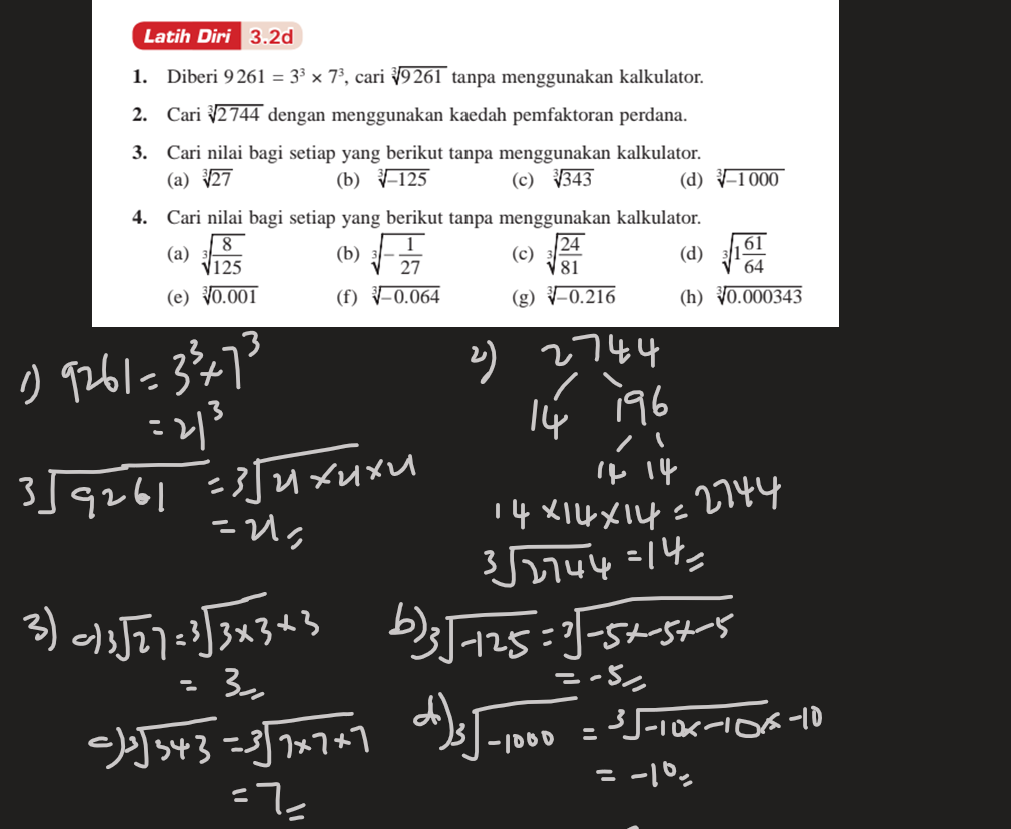 Latih Diri 3.2d
1. Diberi 9 261 = 3³ × 7³, cari ∛9 261 tanpa menggunakan kalkulator.
2. Cari ∛2 744 dengan menggunakan kaedah pemfaktoran perdana.
3. Cari nilai bagi setiap yang berikut tanpa menggunakan kalkulator.
(a) ∛27 (b) ∛–125 (c) ∛343 (d) ∛–1 000
4. Cari nilai bagi setiap yang berikut tanpa menggunakan kalkulator.
(a) ∛(8/125) (b) ∛(–1/27) (c) ∛(24/81) (d) ∛(1 61/64)
(e) ∛0.001 (f) ∛–0.064 (g) ∛–0.216 (h) ∛0.000343
1) 9261 = 3³ × 7³
= 21³
∛9261 = ∛21 × 21 × 21
= 21
2) 2744
14 196
14 14
14 × 14 × 14 = 2744
∛2744 = 14
3) a) ∛27 = ∛3 × 3 × 3
= 3
b) ∛-125 = ∛-5 × -5 × -5
= -5
c) ∛343 = ∛7 × 7 × 7
= 7
d) ∛-1000 = ∛-10 × -10 × -10
= -10